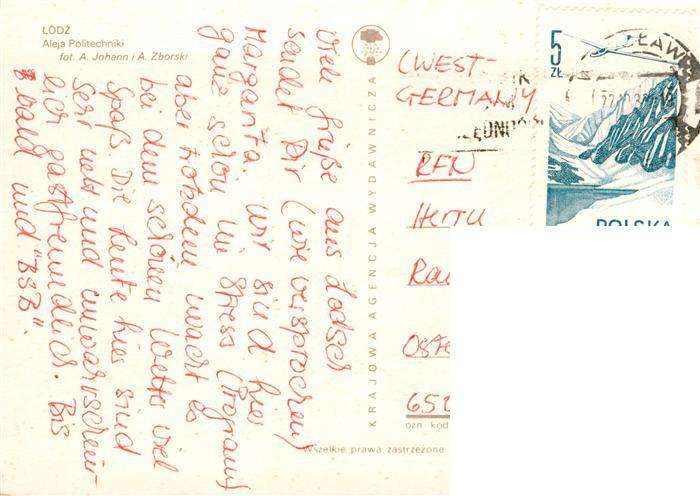 ŁÓDŹ
Aleja Politechniki
fot. A. Johann i A. Zborski
Viele Grüße aus Lodsch
sendet Dir (wie versprochen)
Margarita. Wir sind hier
ganz schön im Stress (Programm)
aber trotzdem macht es
bei dem schönen Wetter viel
Spaß. Die Leute hier sind
sehr nett und unwahrschein-
lich gastfreundlich. Bis
bald und "BSB".
KRAJOWA AGENCJA WYDAWNICZA
(WEST-
GERMANY
RFN
Herrn
652
ozn. kod
Wszelkie prawa zastrzeżone
5
ZŁ
POLSKA